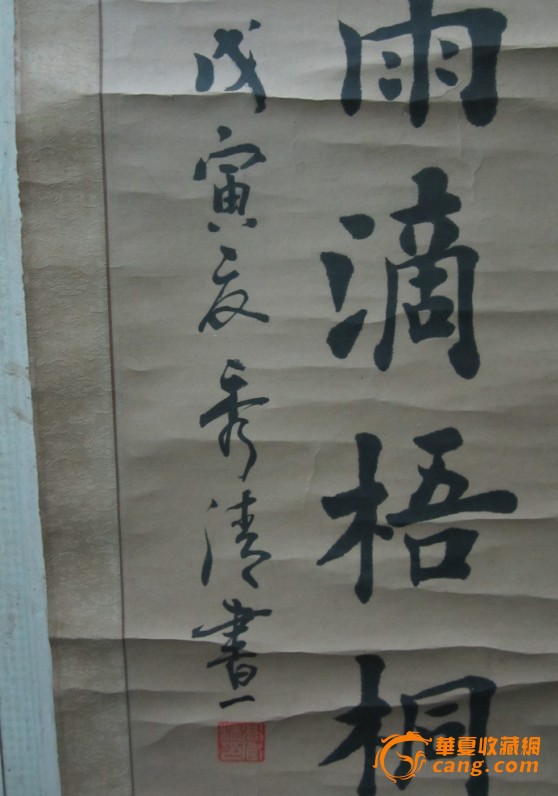 雨滴梧桐
戊寅夏秀清書
華夏收藏網
cang.com